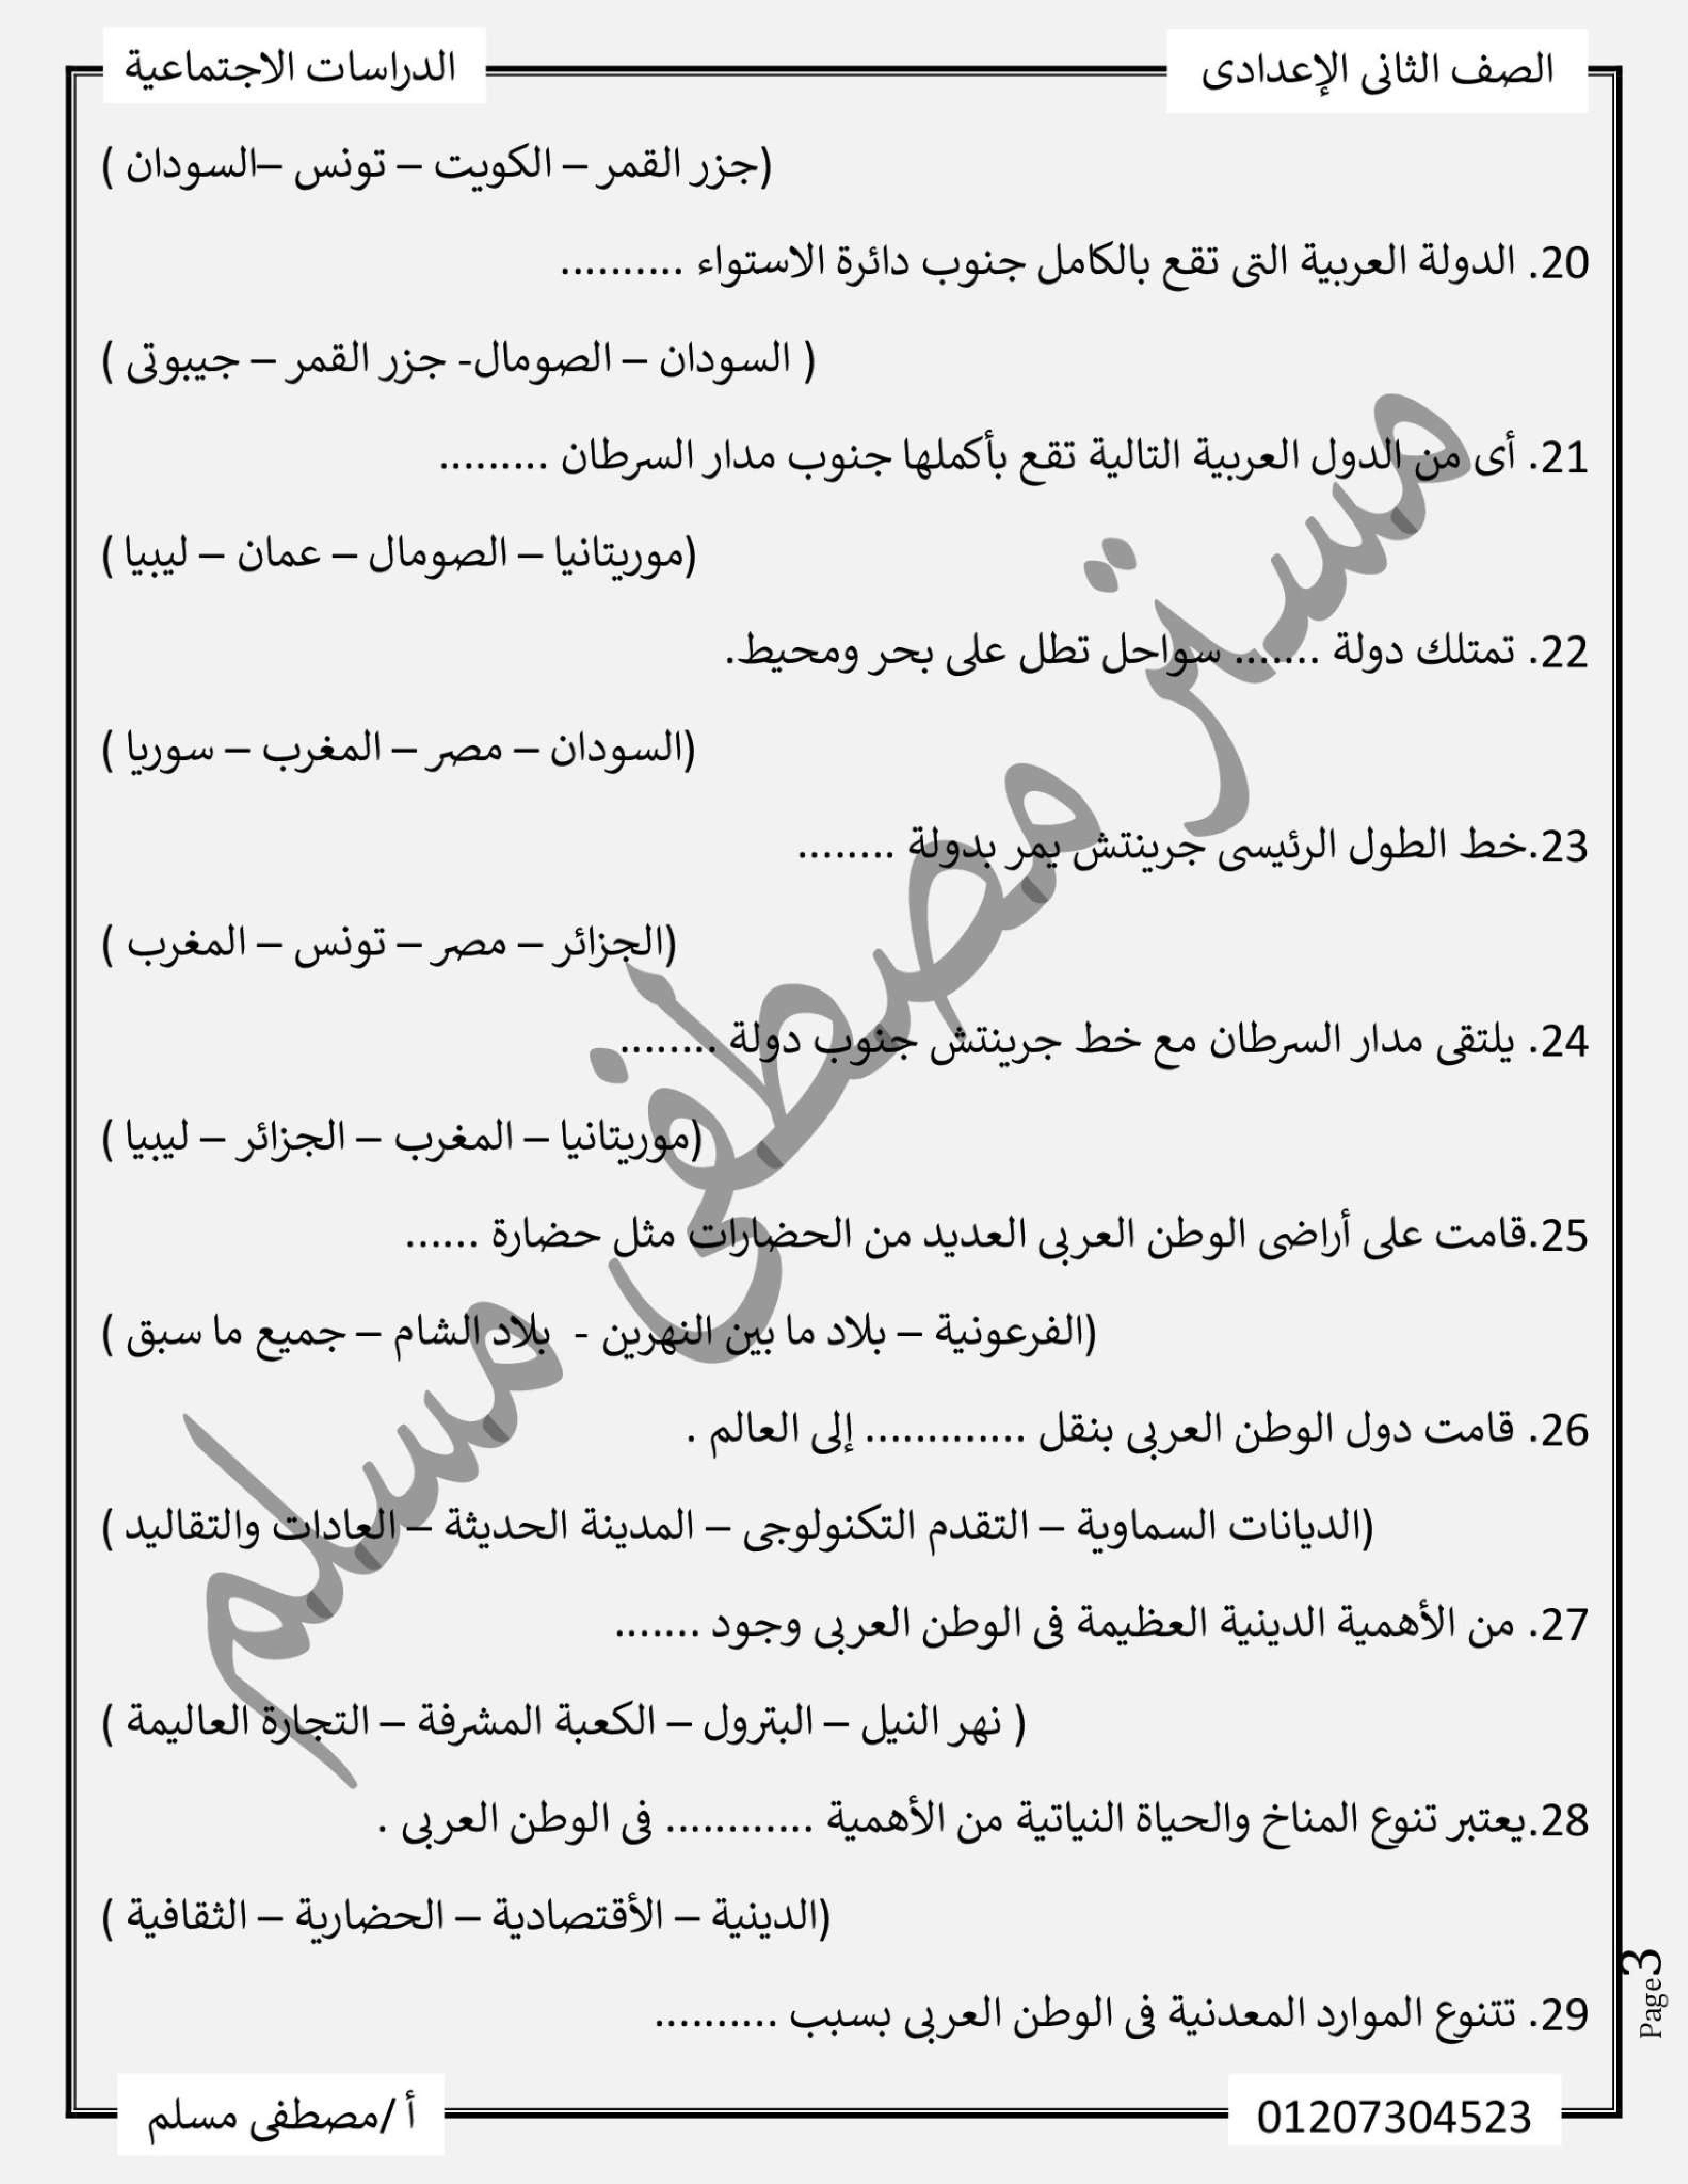 الصف الثانى الإعدادى
الدراسات الاجتماعية
(جزر القمر – الكويت – تونس –السودان )
20. الدولة العربية التى تقع بالكامل جنوب دائرة الاستواء ..........
( السودان – الصومال- جزر القمر – جيبوتى )
21. أى من الدول العربية التالية تقع بأكملها جنوب مدار السرطان .........
(موريتانيا – الصومال – عمان – ليبيا )
22. تمتلك دولة ....... سواحل تطل على بحر ومحيط.
(السودان – مصر – المغرب – سوريا )
23.خط الطول الرئيسى جرينتش يمر بدولة ........
(الجزائر – مصر – تونس – المغرب )
24. يلتقى مدار السرطان مع خط جرينتش جنوب دولة ........
(موريتانيا – المغرب – الجزائر – ليبيا )
25.قامت على أراضى الوطن العربى العديد من الحضارات مثل حضارة ......
(الفرعونية – بلاد ما بين النهرين - بلاد الشام – جميع ما سبق )
26. قامت دول الوطن العربى بنقل ............. إلى العالم .
(الديانات السماوية – التقدم التكنولوجى – المدينة الحديثة – العادات والتقاليد )
27. من الأهمية الدينية العظيمة فى الوطن العربى وجود .......
( نهر النيل – البترول – الكعبة المشرفة – التجارة العاليمة )
28.يعتبر تنوع المناخ والحياة النياتية من الأهمية ............ فى الوطن العربى .
(الدينية – الأقتصادية – الحضارية – الثقافية )
29. تتنوع الموارد المعدنية فى الوطن العربى بسبب ..........
مستر مصطفى مسلم
Page3
01207304523
أ /مصطفى مسلم